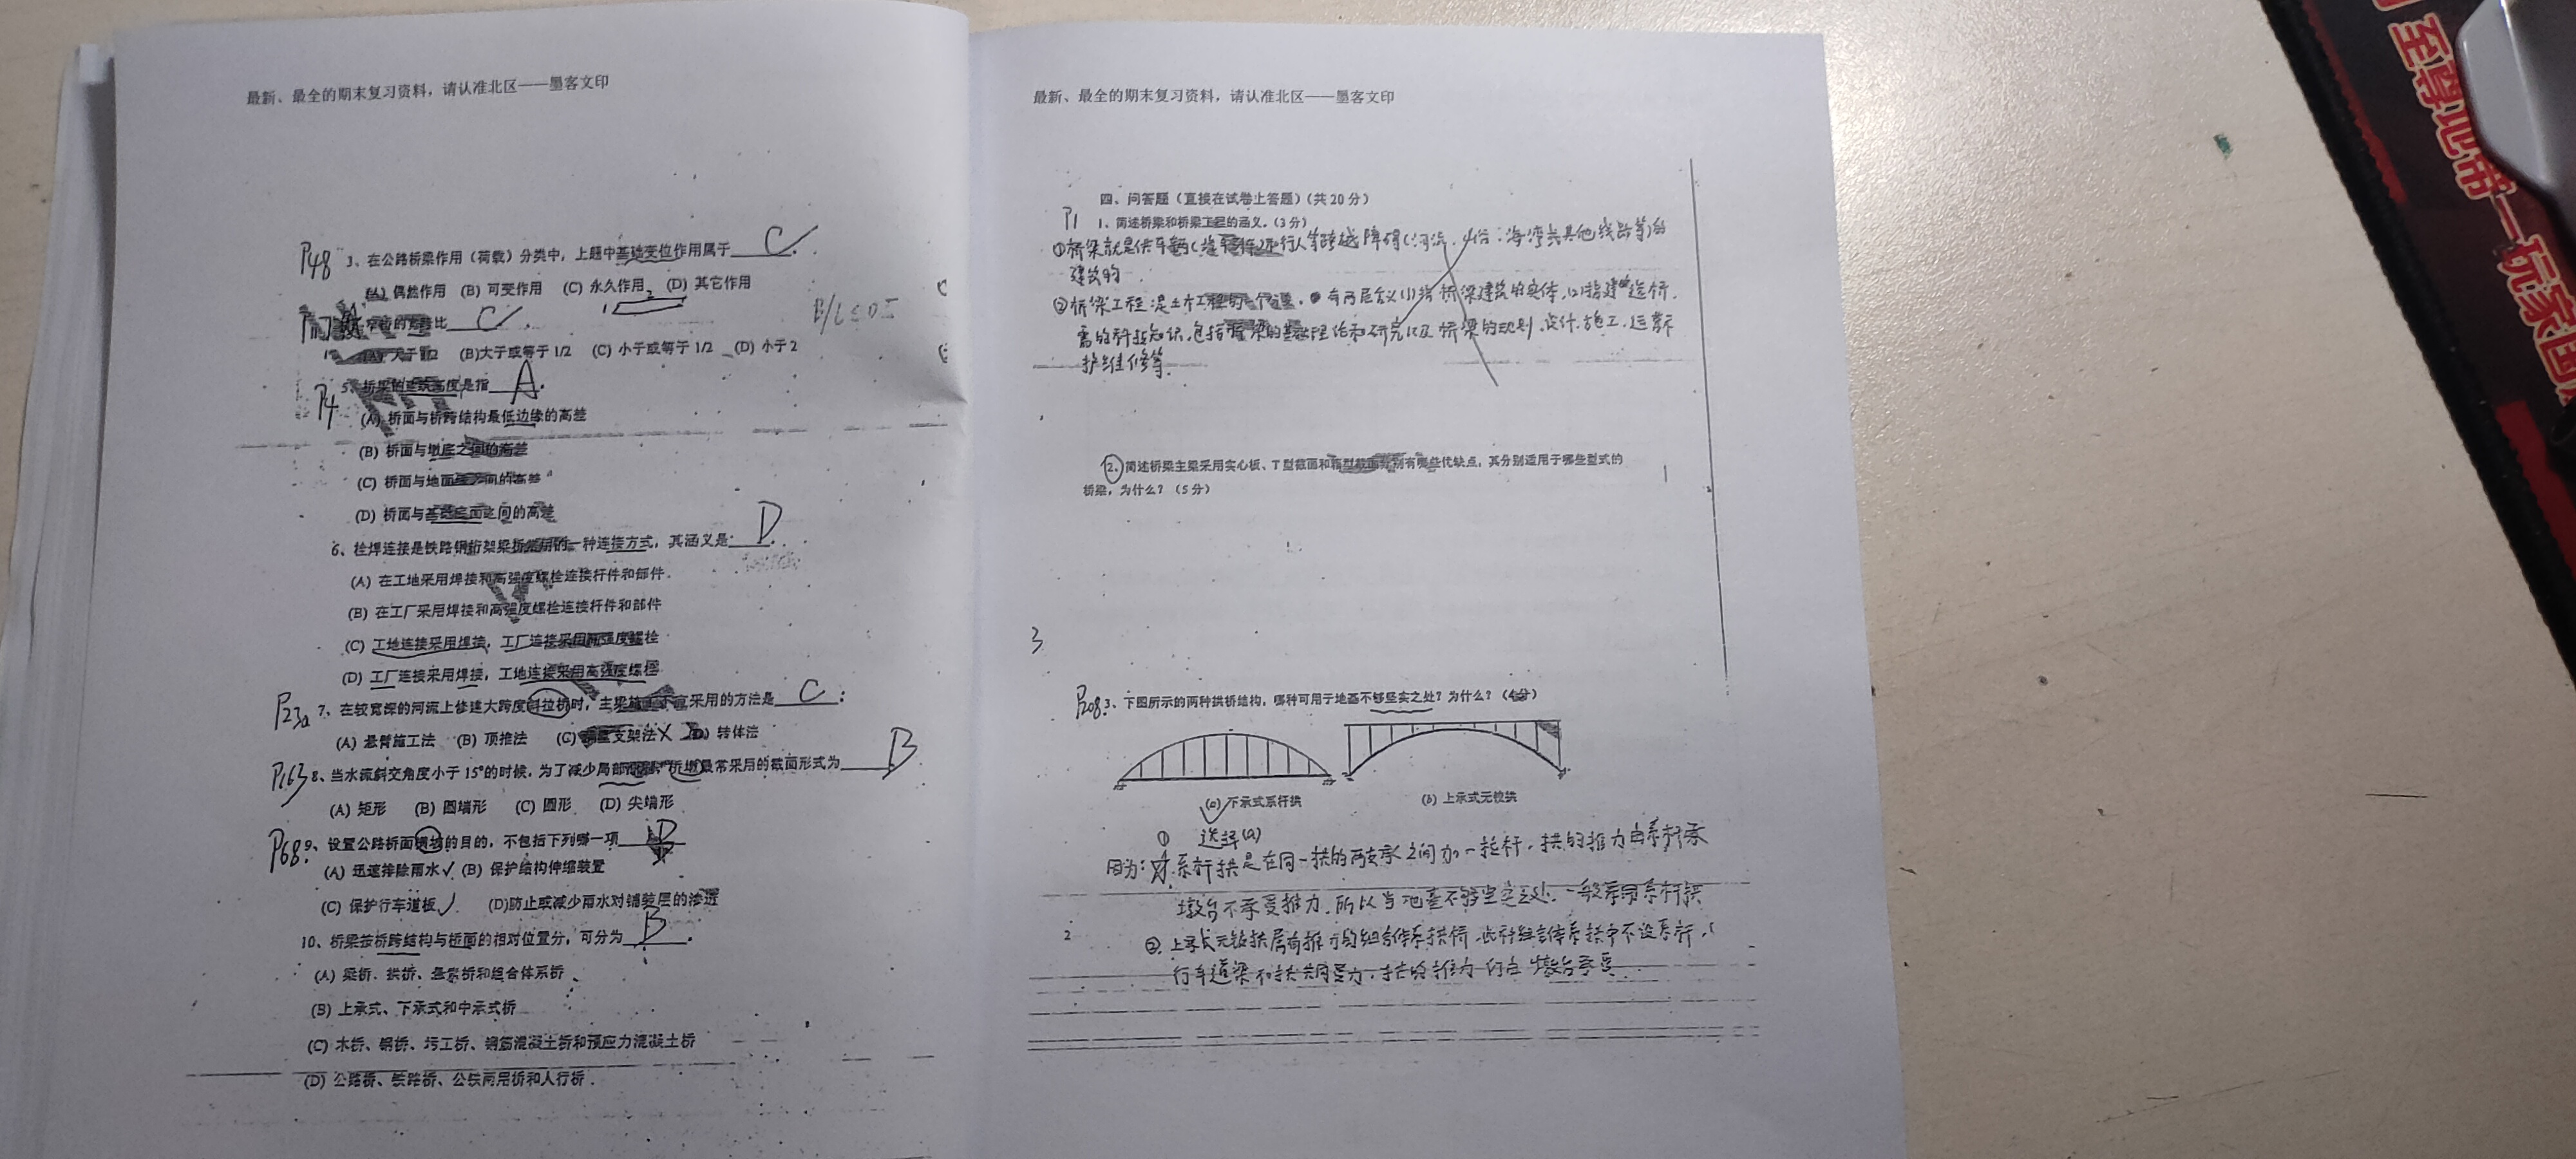 最新、最全的期末复习资料，请认准北区——墨客文印
P48 3、在公路桥梁作用（荷载）分类中，上题中基础变位作用属于 C .
(A) 偶然作用 (B) 可变作用 (C) 永久作用 (D) 其它作用
的宽跨比 C .
(A) 大于1/2 (B)大于或等于 1/2 (C) 小于或等于 1/2 (D) 小于2
P4 5、桥梁的建筑高度是指 A.
(A) 桥面与桥跨结构最低边缘的高差
(B) 桥面与墩底之间的高差
(C) 桥面与地面之间的高差
(D) 桥面与基础底面之间的高差
6、栓焊连接是铁路钢桁架梁桥常用的一种连接方式，其涵义是 D .
(A) 在工地采用焊接和高强度螺栓连接杆件和部件.
(B) 在工厂采用焊接和高强度螺栓连接杆件和部件
(C) 工地连接采用焊接，工厂连接采用高强度螺栓
(D) 工厂连接采用焊接，工地连接采用高强度螺栓
7、在较宽深的河流上修建大跨度斜拉桥时，主梁施工不宜采用的方法是 C ；
(A) 悬臂施工法 (B) 顶推法 (C) 支架法 (D) 转体法
P163 8、当水流斜交角度小于 15°的时候，为了减少局部 桥墩最常采用的截面形式为 B
(A) 矩形 (B) 圆端形 (C) 圆形 (D) 尖端形
P68. 9、设置公路桥面横坡的目的，不包括下列哪一项
(A) 迅速排除雨水 (B) 保护结构伸缩装置
(C) 保护行车道板 (D)防止或减少雨水对铺装层的渗透
10、桥梁按桥跨结构与桥面的相对位置分，可分为 B .
(A) 梁桥、拱桥、悬索桥和组合体系桥
(B) 上承式、下承式和中承式桥
(C) 木桥、钢桥、圬工桥、钢筋混凝土桥和预应力混凝土桥
(D) 公路桥、铁路桥、公铁两用桥和人行桥.
最新、最全的期末复习资料，请认准北区——墨客文印
四、问答题（直接在试卷上答题）(共 20 分)
P1 1、简述桥梁和桥梁工程的涵义.（3 分）
①桥梁就是供车辆 行人等跨越障碍(河流、山谷、海湾或其他线路等)的
建筑物.
②桥梁工程 有两层含义(1)指桥梁建筑的实体,(2)指建造桥
需的科技知识,包括桥梁的基础理论和研究以及桥梁的规划、设计、施工、运营养
护维修等.
2、简述桥梁主梁采用实心板、T 型截面和箱型截面分别有哪些优缺点，其分别适用于哪些型式的
桥梁，为什么？（5 分）
3
P208. 3、下图所示的两种拱桥结构，哪种可用于地基不够坚实之处？为什么？（4分）
(a) 下承式系杆拱 (b) 上承式无铰拱
① 选择(a)
因为: 系杆拱是在同一拱的两支承之间加一拉杆，拱的推力由系杆承
墩台不承受推力.所以当地基不够坚实之处.一般采用系杆拱
2
② 上承式无铰拱属有推力的组合体系拱桥.此种组合体系拱中不设系杆,
行车道梁和拱共同受力,拱的推力仍由墩台承受.